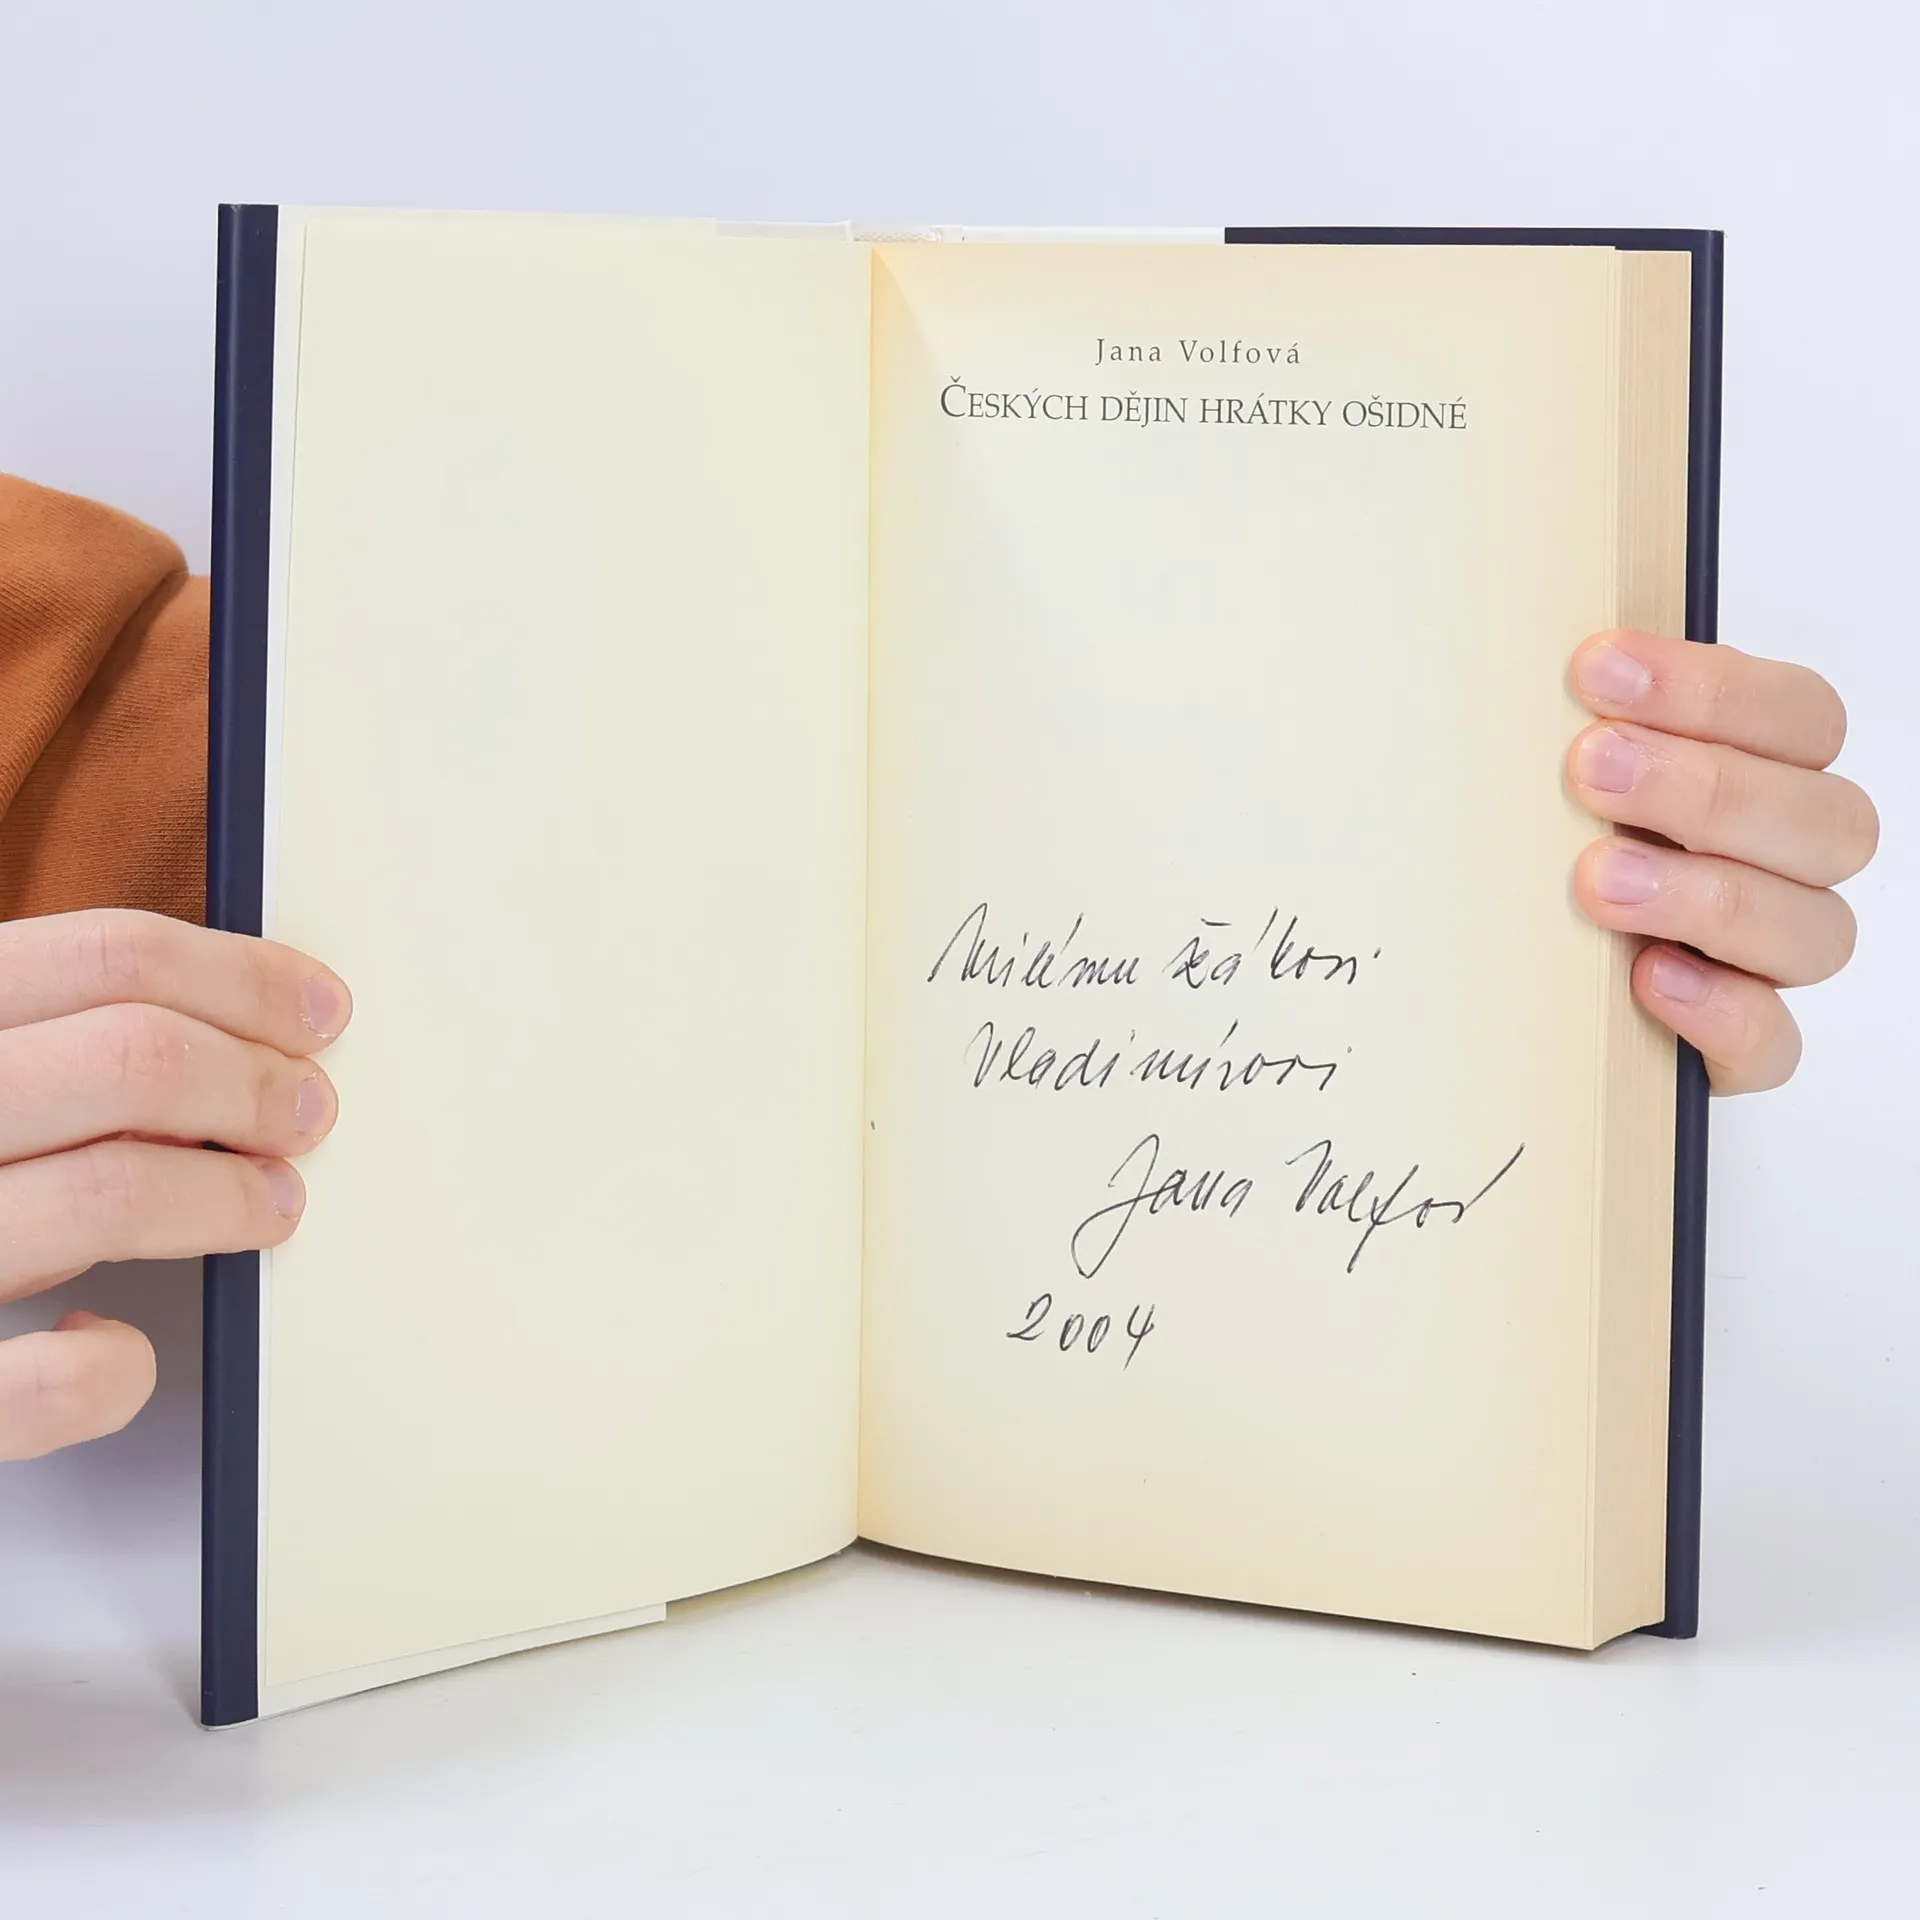 Jana Volfová
ČESKÝCH DĚJIN HRÁTKY OŠIDNÉ
Milému žákovi
Vladimírovi
Jana Volfová
2004